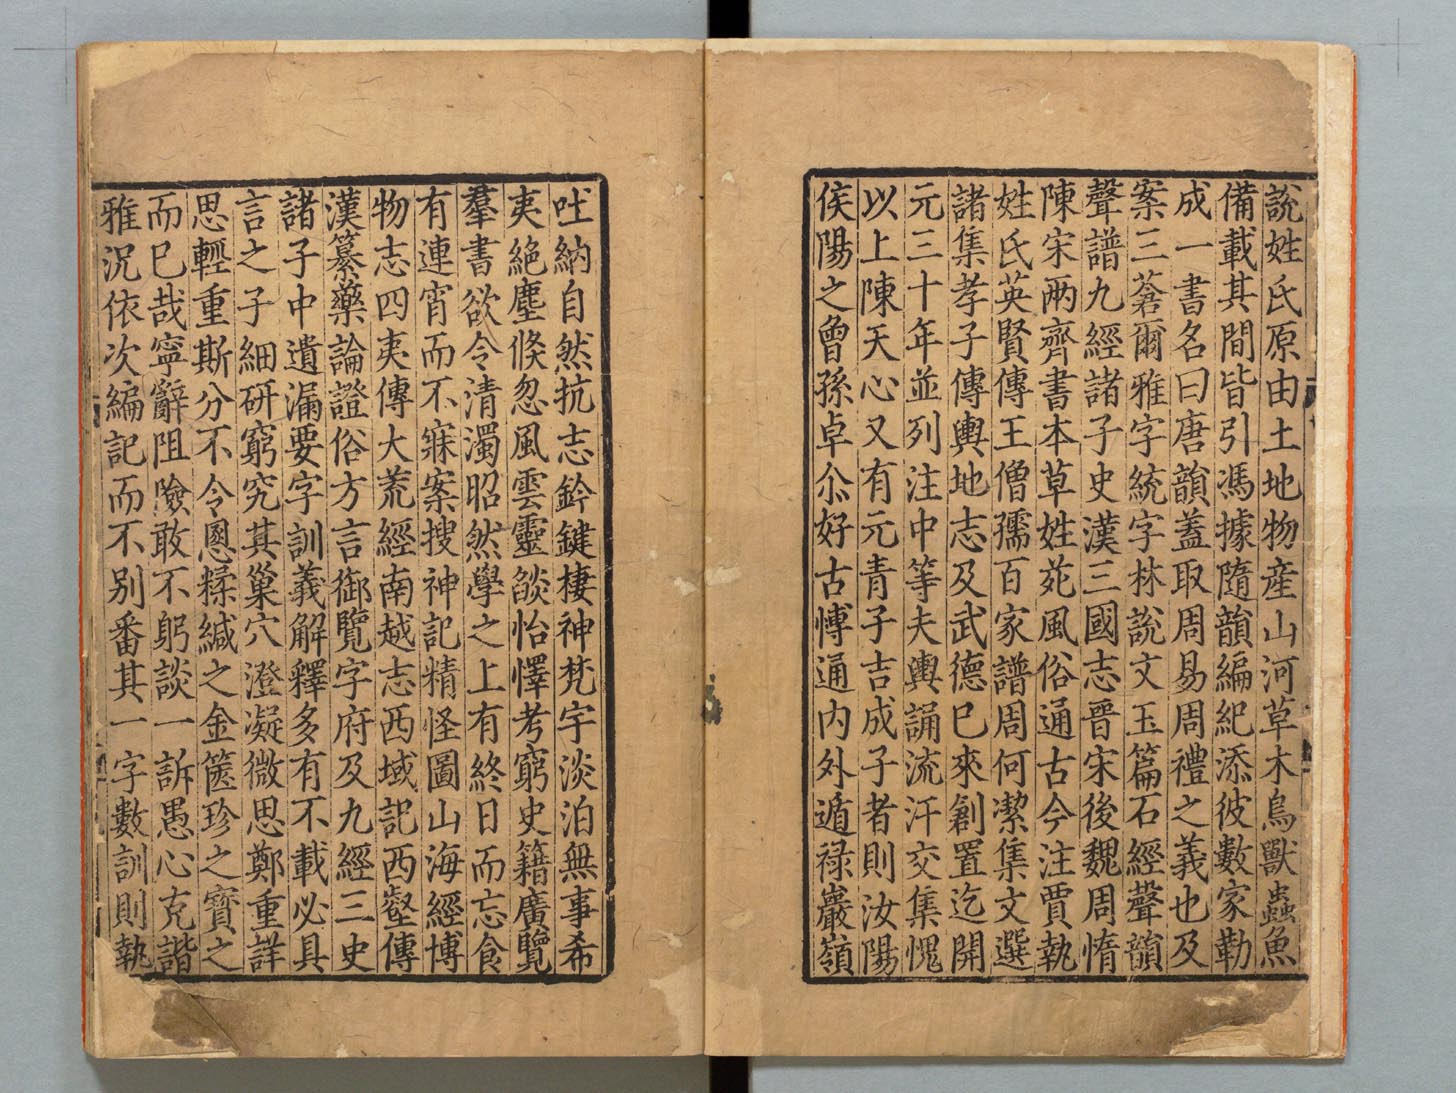 說姓氏原由土地物產山河草木鳥獸蟲魚
備載其間皆引馮據隨韻編紀添彼數家勒
成一書名曰唐韻蓋取周易周禮之義也及
案三蒼爾雅字統字林說文玉篇石經聲韻
聲譜九經諸子史漢三國志晉宋後魏周惰
陳宋兩齊書本草姓菀風俗通古今注賈執
姓氏英賢傳王僧孺百家譜周何潔集文選
諸集孝子傳輿地志及武德已來創置迄開
元三十年並列注中等夫輿誦流汗交集愧
以上陳天心又有元青子吉成子者則汝陽
侯陽之曾孫卓尒好古愽通內外遁祿巖嶺
吐納自然抗志鈐鍵棲神梵宇淡泊無事希
夷絕塵倏忽風雲靈燄怡懌考窮史籍廣覽
羣書欲令清濁昭然學之上有終日而忘食
有連宵而不寐案搜神記精怪圖山海經博
物志四夷傳大荒經南越志西域記西壑傳
漢纂藥論證俗方言御覽字府及九經三史
諸子中遺漏要字訓義解釋多有不載必具
言之子細研窮究其巢穴澄凝微思鄭重詳
思輕重斯分不令慁糅緘之金篋珍之寶之
而已哉寧辭阻險敢不躬談一訴愚心克諧
雅況依次編記而不別番其一字數訓則執